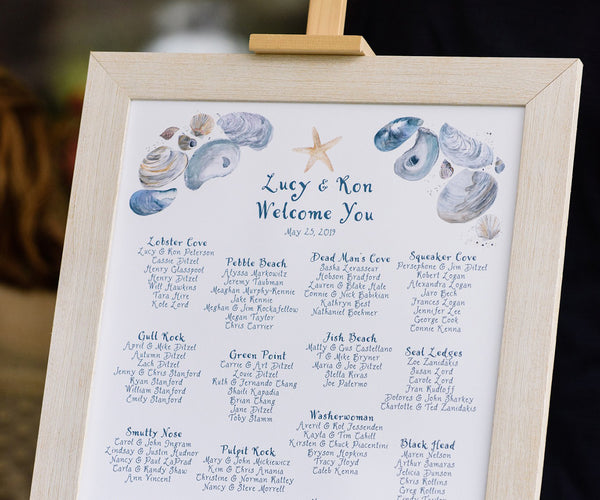 Lucy & Ron
Welcome You
May 25, 2019
Lobster Cove
Lucy & Ron Petersen
Cassie Ditzel
Henry Glasspool
Henry Ditzel
Will Hawkins
Tara Hire
Kole Lord
Pebble Beach
Alyssa Markowitz
Jeremy Taubman
Meghan Murphy-Rennie
Jake Rennie
Meghan & Jim Rockafellow
Megan Taylor
Chris Carrier
Dead Man's Cove
Sasha Levasseur
Hobson Bradford
Lauren & Blake Hale
Connie & Nick Babikian
Kathryn Best
Nathaniel Boehmer
Squeaker Cove
Persephone & Jim Ditzel
Robert Logan
Alexandra Logan
Jaro Bech
Frances Logan
Jennifer Lee
George Cook
Connie Kenna
Gull Rock
April & Mike Ditzel
Autumn Ditzel
Zach Ditzel
Jenny & Chris Stanford
Ryan Stanford
William Stanford
Emily Stanford
Green Point
Carrie & Art Ditzel
Louie Ditzel
Ruth & Fernando Chang
Shaili Kapadia
Brian Chang
Jane Ditzel
Toby Stamm
Fish Beach
Matty & Gus Castellano
T & Mike Bryner
Maria & Joe Ditzel
Stella Rivas
Joe Palermo
Seal Ledges
Zoe Zanidakis
Susan Lord
Carole Lord
Fran Rudloff
Dolores & John Sharkey
Charlotte & Ted Zanidakis
Smutty Nose
Carol & John Ingram
Lindsay & Justin Hudnor
Nancy & Paul LaPrad
Carla & Randy Shaw
Ann Vincent
Pulpit Rock
Mary & John Mickiewicz
Kim & Chris Anania
Christine & Norman Rattey
Nancy & Steve Morrell
Washerwoman
Averil & Rol Fessenden
Kayla & Tim Cahill
Kirsten & Chuck Piacentini
Bryson Hopkins
Tracy Floyd
Caleb Kenna
Black Head
Maren Nelson
Arthur Samaras
Felicia Dumas
Chris Rollins
Chris Rollins
Greg Rollins